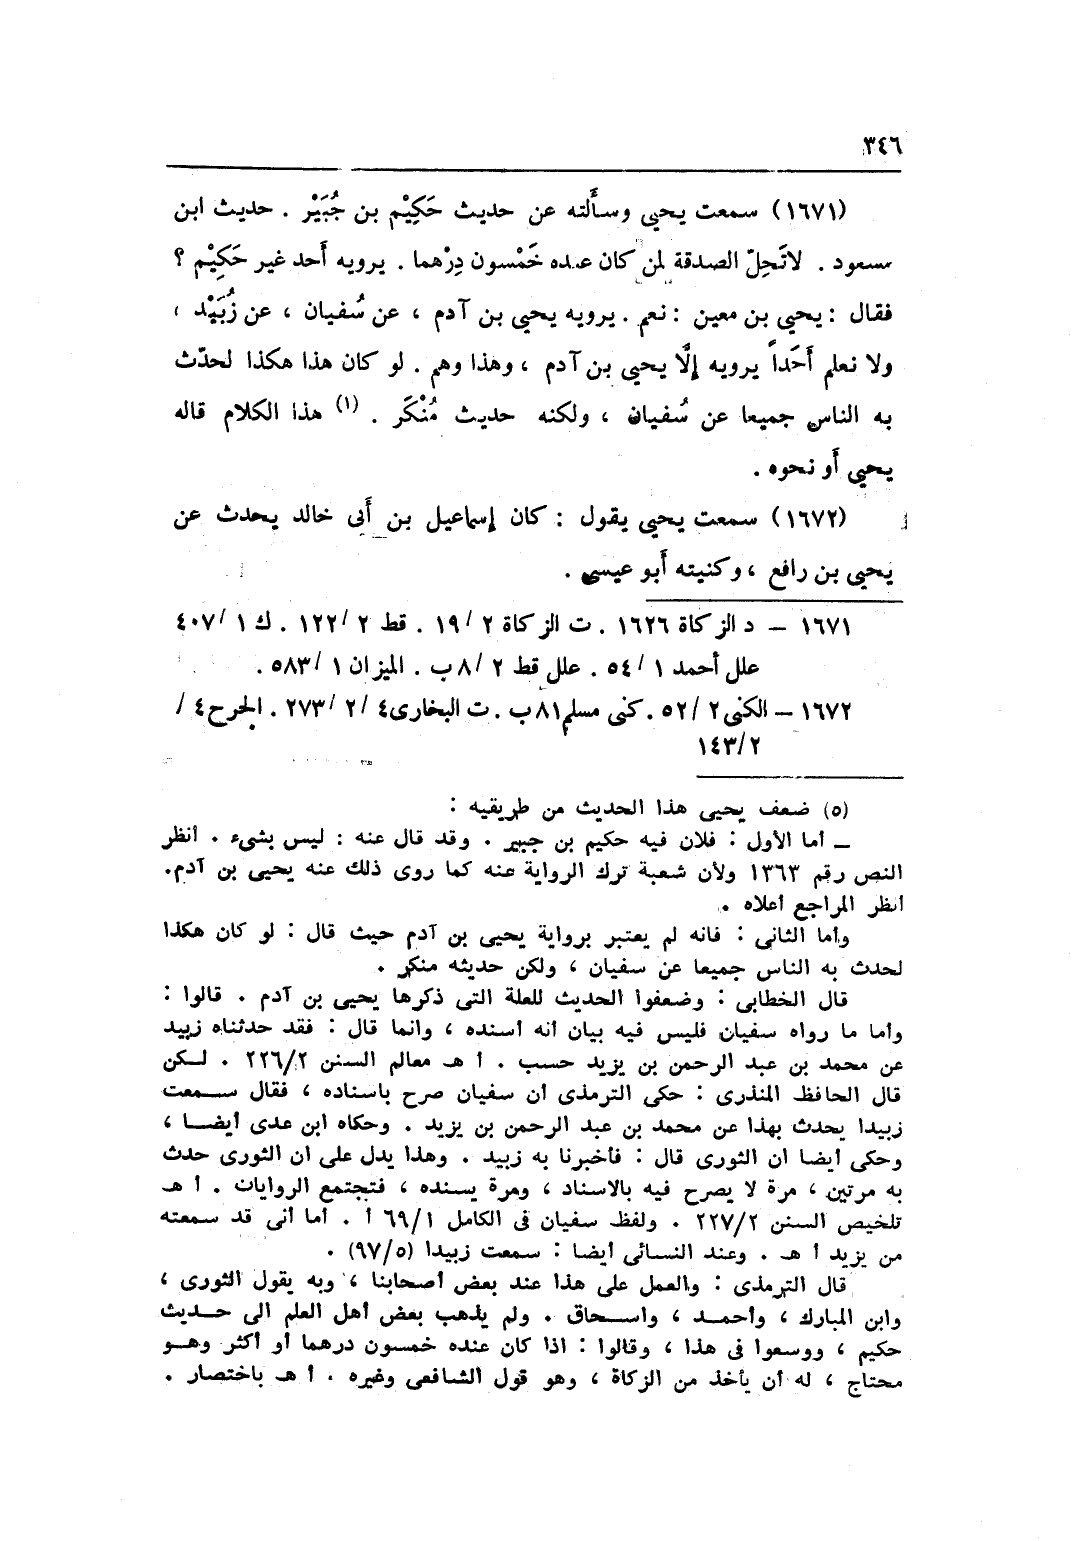 ٣٤٦
(١٦٧١) سمعت يحيى وسأَلته عن حديث حَكِيْم بن جُبَيْر . حديث ابن
مسعود . لاتَحِلّ الصدقة لمن كان عنده خَمْسون دِرْهما . يرويه أَحد غير حَكِيْم ؟
فقال : يحيى بن معين : نعم . يرويه يحيى بن آدم ، عن سُفيان ، عن زُبَيْد ،
ولا نعلم أَحَداً يرويه إلَّا يحيى بن آدم ، وهذا وهم . لو كان هذا هكذا لحدّث
به الناس جميعا عن سُفيان ، ولكنه حديث مُنْكَر . (١) هذا الكلام قاله
يحيى أَو نحوه .
(١٦٧٢) سمعت يحيى يقول : كان إسماعيل بن أَبى خالد يحدث عن
يحيى بن رافع ، وكنيته أَبو عيسى .
١٦٧١ – د الزكاة ١٦٢٦ . ت الزكاة ٢ /١٩ . قط ٢ /١٢٢ . ك ١ /٤٠٧
علل أحمد ١ /٥٤ . علل قط ٢ /٨ب . الميزان ١ /٥٨٣ .
١٦٧٢ – الكنى ٢ /٥٢ . كنى مسلم ٨١ب . ت البخارى ٤ /٢ /٢٧٣ . الجرح ٤ /
٢/١٤٣
(٥) ضعف يحيى هذا الحديث من طريقيه :
ــ أما الأول : فلان فيه حكيم بن جبير . وقد قال عنه : ليس بشىء . أنظر
النص رقم ١٣٦٣ ولأن شعبة ترك الرواية عنه كما روى ذلك عنه يحيى بن آدم.
أنظر المراجع أعلاه .
وأما الثانى : فانه لم يعتبر برواية يحيى بن آدم حيث قال : لو كان هكذا
لحدث به الناس جميعا عن سفيان ، ولكن حديثه منكر .
قال الخطابى : وضعفوا الحديث للعلة التى ذكرها يحيى بن آدم . قالوا :
وأما ما رواه سفيان فليس فيه بيان أنه أسنده ، وانما قال : فقد حدثناه زبيد
عن محمد بن عبد الرحمن بن يزيد حسب . أ هـ معالم السنن ٢٢٦/٢ . لــكن
قال الحافظ المنذرى : حكى الترمذى أن سفيان صرح باسناده ، فقال ســـمعت
زبيدا يحدث بهذا عن محمد بن عبد الرحمن بن يزيد . وحكاه ابن عدى أيضــا ،
وحكى أيضا ان الثورى قال : فأخبرنا به زبيد . وهذا يدل على ان الثورى حدث
به مرتين ، مرة لا يصرح فيه بالاسناد ، ومرة يسنده ، فتجتمع الروايات . أ هـ
تلخيص السنن ٢٢٧/٢ . ولفظ سفيان فى الكامل ٦٩/١ أ . أما أنى قد سمعته
من يزيد أ هـ . وعند النسائى أيضا : سمعت زبيدا (٩٧/٥) .
قال الترمذى : والعمل على هذا عند بعض أصحابنا ، وبه يقول الثورى ،
وابن المبارك ، وأحمــد ، واســـحاق . ولم يذهب بعض أهل العلم الى حــديث
حكيم ، ووسعوا فى هذا ، وقالوا : اذا كان عنده خمسون درهما أو أكثر وهــو
محتاج ، له أن يأخذ من الزكاة ، وهو قول الشافعى وغيره . أ هـ باختصار .